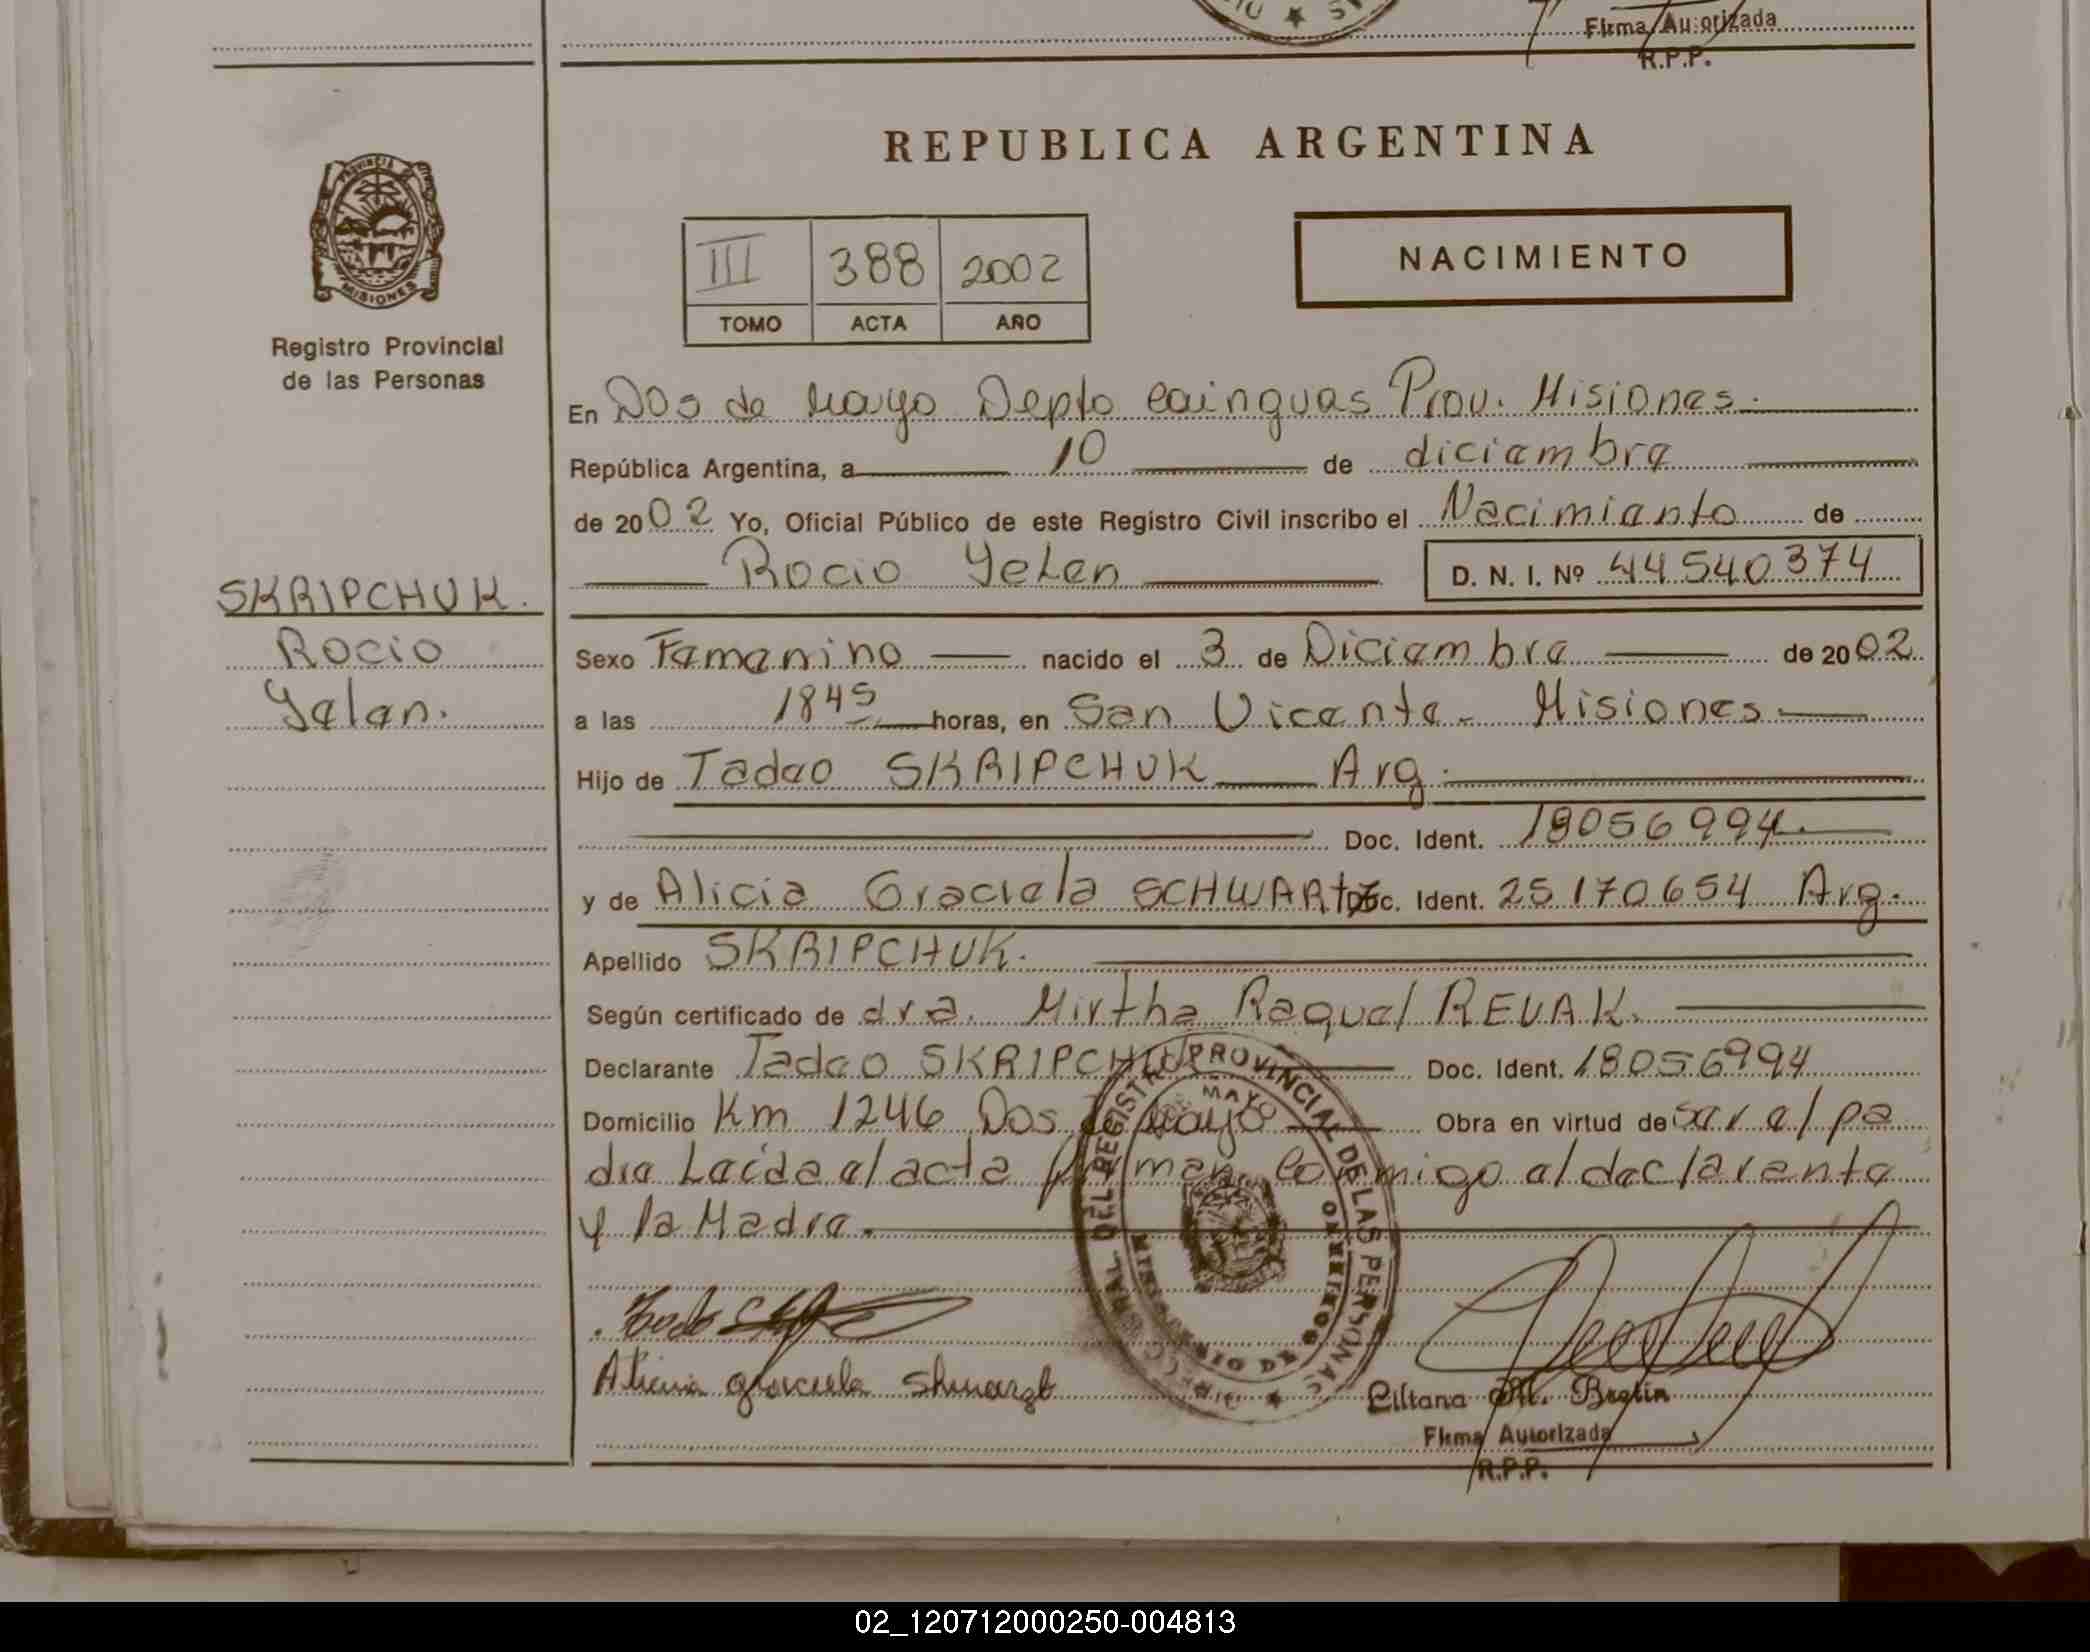 Firma Autorizada
R.P.P.
REPUBLICA ARGENTINA
PROVINCIA DE
MISIONES
Registro Provincial
de las Personas
III 388 2002
TOMO ACTA AÑO
NACIMIENTO
En Dos de Mayo Depto Cainguas Prov. Misiones.
República Argentina, a 10 de diciembre
de 2002 Yo, Oficial Público de este Registro Civil inscribo el Nacimiento de
Rocio Yelen D. N. I. Nº 44540374
SKRIPCHUK.
Rocio
Yelen.
Sexo Femenino nacido el 3 de Diciembre de 2002
a las 1845 horas, en San Vicente. Misiones
Hijo de Tadeo SKRIPCHUK Arg.
Doc. Ident. 18056994.
y de Alicia Graciela SCHWARTZ Doc. Ident. 25170654 Arg.
Apellido SKRIPCHUK.
Según certificado de dra. Mirtha Raquel REVAK.
Declarante Tadeo SKRIPCHUK Doc. Ident. 18056994
Domicilio Km 1246 Dos de Mayo Obra en virtud de ser el pa
dre Leida el acta firman conmigo el declarante
y la Madre.
DEL REGISTRO PROVINCIAL DE LAS PERSONAS
MAYO
Alicia graciela Shwarzt
M. Brolin
Firma Autorizada
R.P.P.
02_120712000250-004813